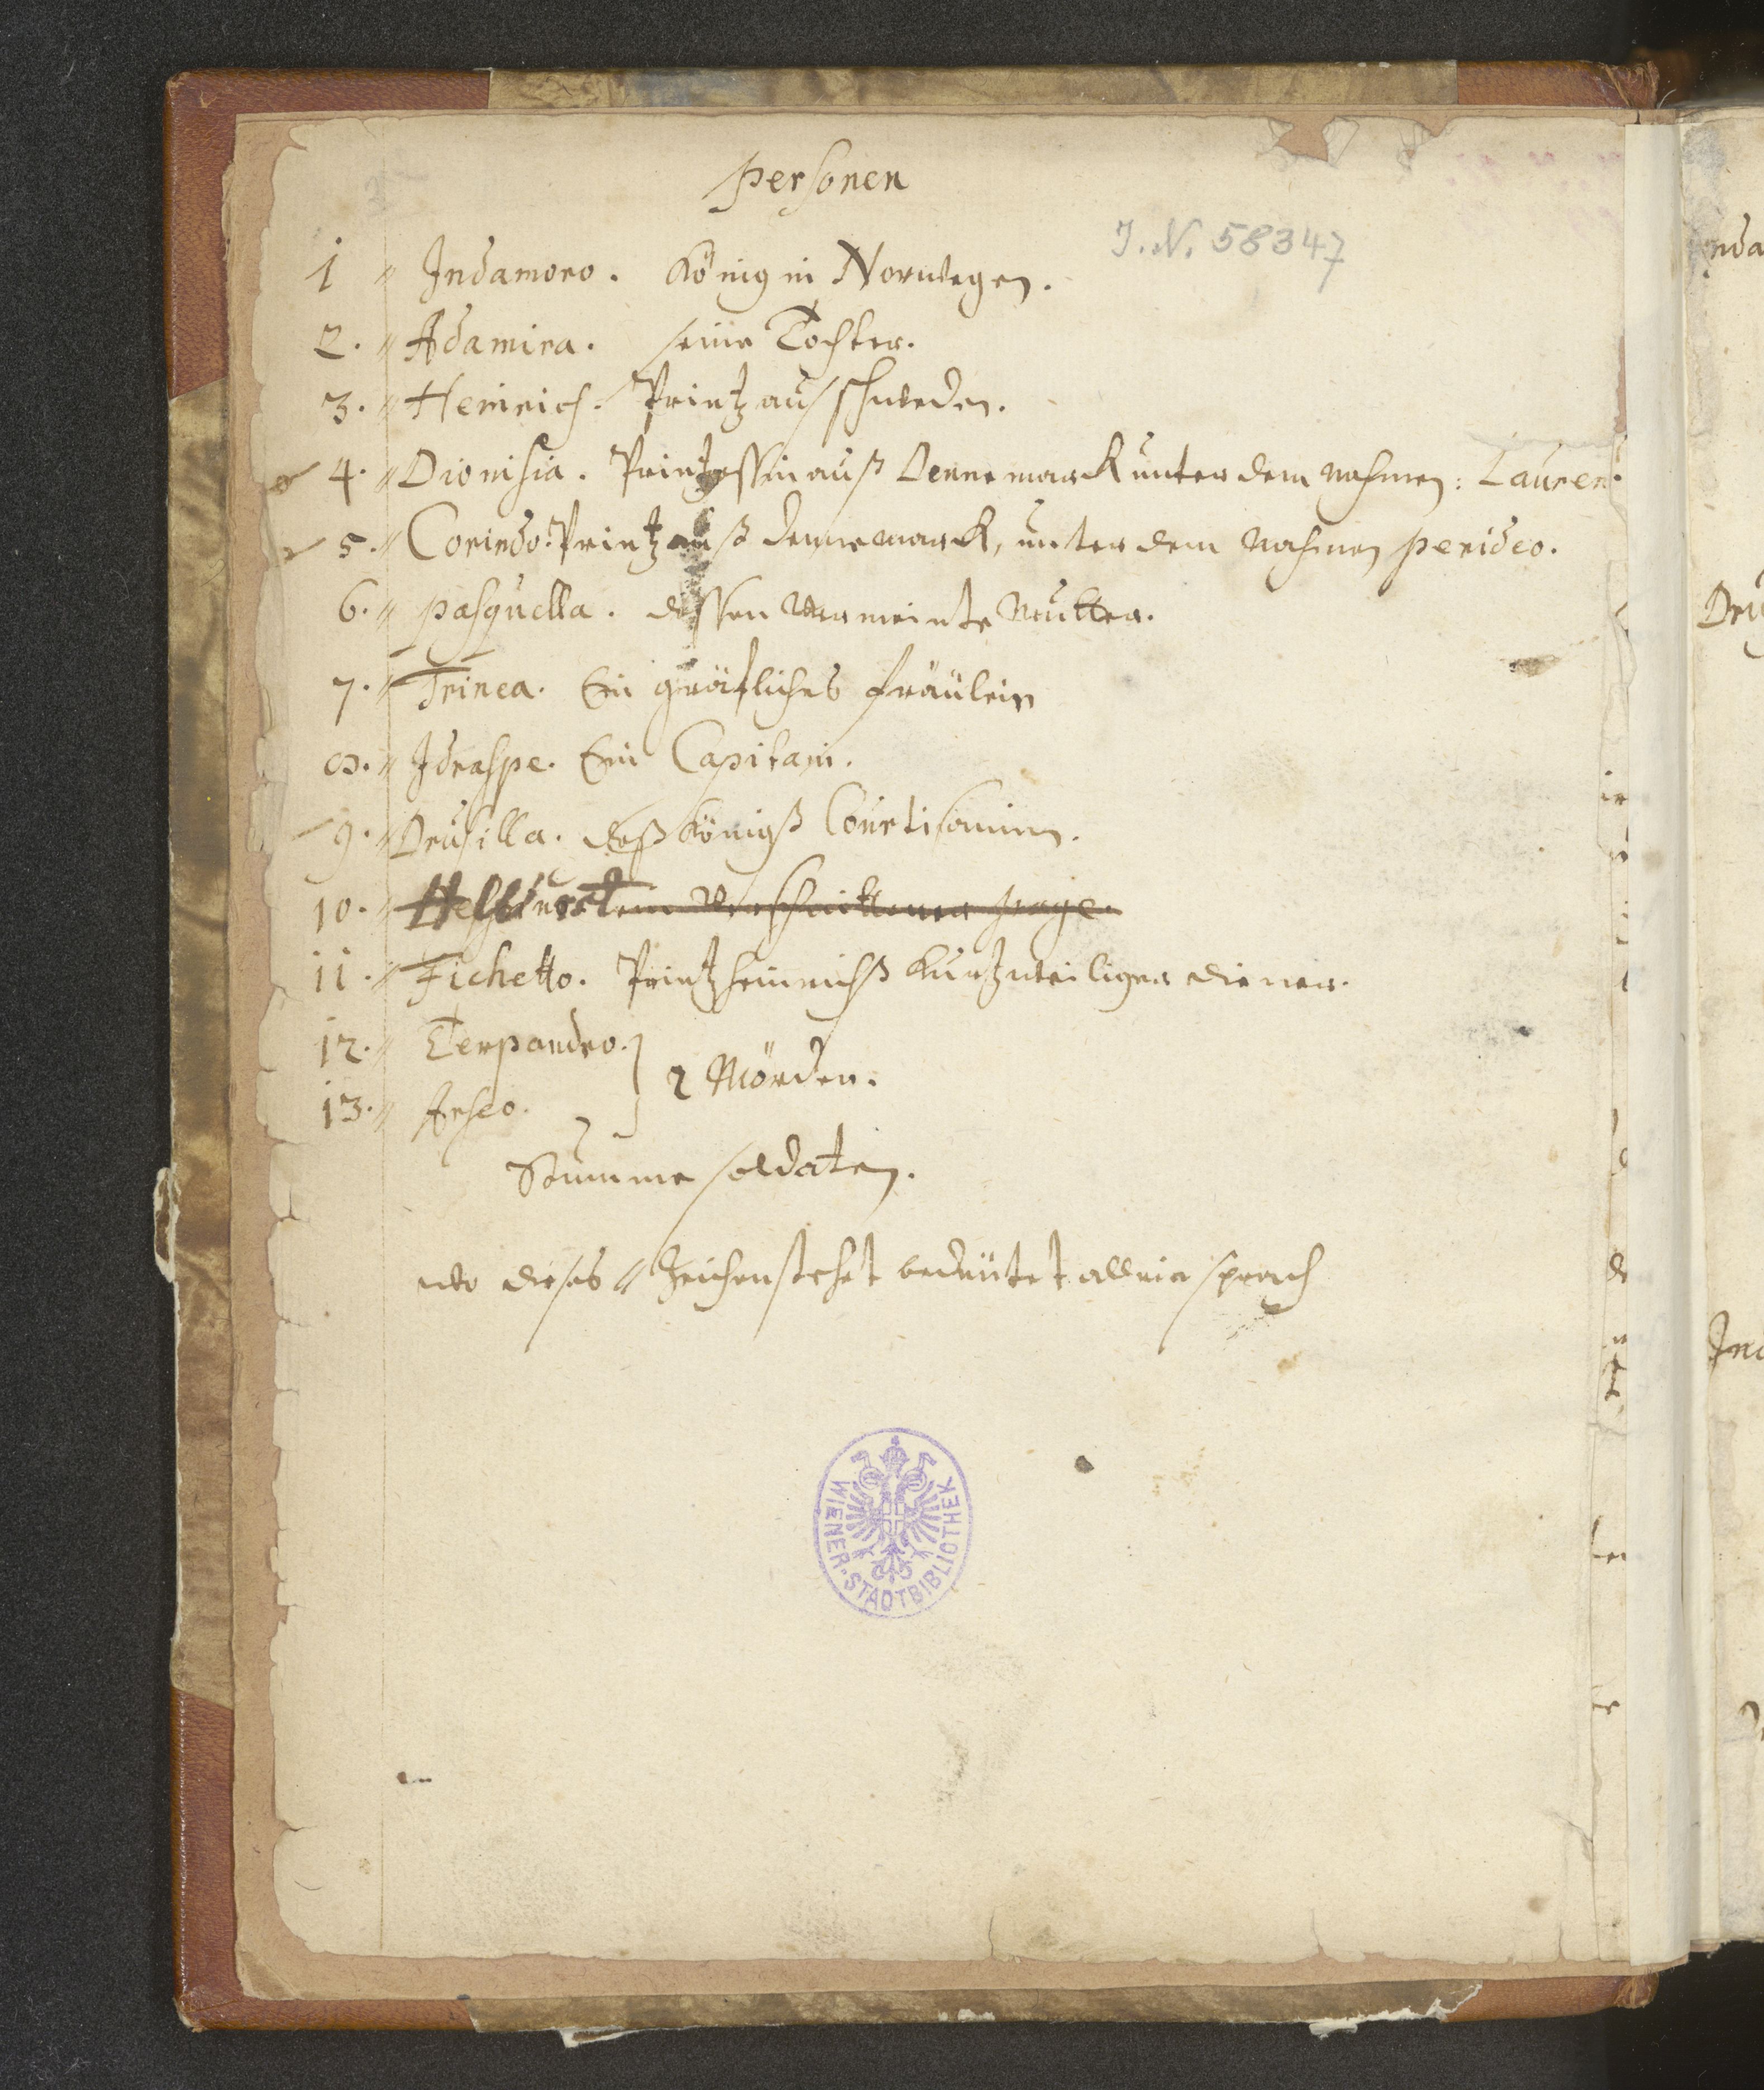 Personen
J. N. 58347
1 〃 Indamoro. König in Norwegen.
2. 〃 Adamira. seine Tochter.
3. 〃 Heinrich. Printz aus schweden.
4. 〃 Dionisia. Printzessin auß Dennemarck unter dem nahmen: Lauren
5. 〃 Corindo. Printz auß dennemarck, unter dem nahmen Perideo.
6. 〃 Pasquella. dessen vermeinte Mutter.
7. 〃 Trinea. Ein gräfliches fräulein
8. 〃 Idraspe. Ein Capitain.
9. 〃 Drusilla. deß Königß Courtisanin.
10. 〃 ein verschnittener page.
11. 〃 Fichetto. Printz Heinrichß kurtzweiliger diener.
12. 〃 Terpandro. } 2 Mörder.
13. 〃 Arseo.
Stumme soldaten.
wo dieses 〃 Zeichen stehet bedeutet allein sprach
WIENER·STADTBIBLIOTHEK